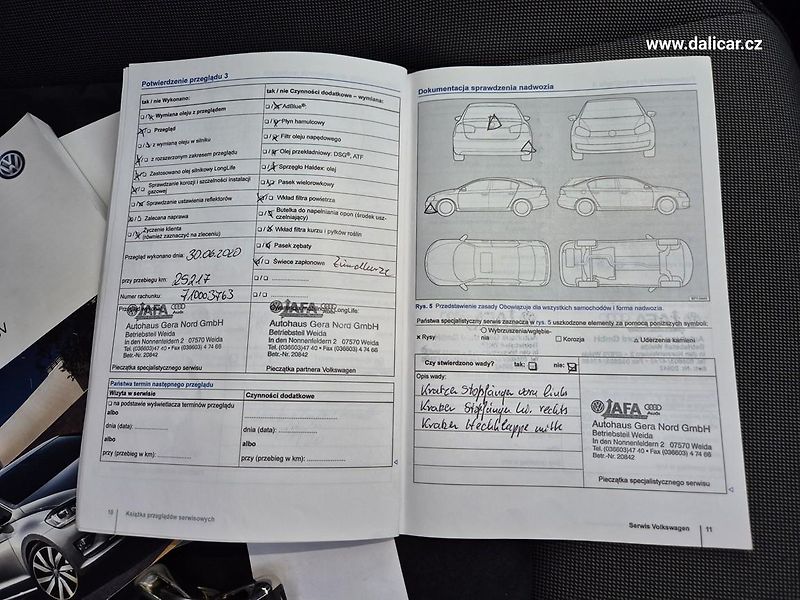 www.dalicar.cz
Potwierdzenie przeglądu 3
tak / nie Wykonano:
Wymiana oleju z przeglądem
Przegląd
z wymianą oleju w silniku
z rozszerzonym zakresem przeglądu
Zastosowano olej silnikowy LongLife
Sprawdzanie korozji i szczelności instalacji
gazowej
Sprawdzanie ustawienia reflektorów
Zalecana naprawa
Życzenie klienta
(również zaznaczyć na zleceniu)
Przegląd wykonano dnia: 30.06.2020
przy przebiegu km: 25217
Numer rachunku: 710003763
tak / nie Czynności dodatkowe – wymiana:
AdBlue®:
Płyn hamulcowy
Filtr oleju napędowego
Olej przekładniowy: DSG®, ATF
Sprzęgło Haldex: olej
Pasek wielorowkowy
Wkład filtra powietrza
Butelka do napełniania opon (środek usz-
czelniający)
Wkład filtra kurzu i pyłków roślin
Pasek zębaty
Świece zapłonowe Zündkerze
JAFA Audi
Autohaus Gera Nord GmbH
Betriebsteil Weida
In den Nonnenfeldern 2 07570 Weida
Tel. (036603)47 40 • Fax (036603) 4 74 66
Betr.-Nr. 20842
Pieczątka specjalistycznego serwisu
LongLife:
JAFA Audi
Autohaus Gera Nord GmbH
Betriebsteil Weida
In den Nonnenfeldern 2 07570 Weida
Tel. (036603)47 40 • Fax (036603) 4 74 66
Betr.-Nr. 20842
Pieczątka partnera Volkswagen
Państwa termin następnego przeglądu
Wizyta w serwisie
na podstawie wyświetlacza terminów przeglądu
albo
dnia (data):
albo
przy (przebieg w km):
Czynności dodatkowe
dnia (data):
albo
przy (przebieg w km):
10 Książka przeglądów serwisowych
Dokumentacja sprawdzenia nadwozia
Rys. 5 Przedstawienie zasady Obowiązuje dla wszystkich samochodów i forma nadwozia.
Państwa specjalistyczny serwis zaznacza w rys. 5 uszkodzone elementy za pomocą poniższych symboli:
× Rysy
○ Wybrzuszenia/wgłębie-
nia
□ Korozja
△ Uderzenia kamieni
Czy stwierdzono wady? tak: nie:
Opis wady:
Kratzer Stoßfänger vorn links
Kratzer Stoßfänger hi. rechts
Kratzer Heckklappe mitte
JAFA Audi
Autohaus Gera Nord GmbH
Betriebsteil Weida
In den Nonnenfeldern 2 07570 Weida
Tel. (036603)47 40 • Fax (036603) 4 74 66
Betr.-Nr. 20842
Pieczątka specjalistycznego serwisu
Serwis Volkswagen 11